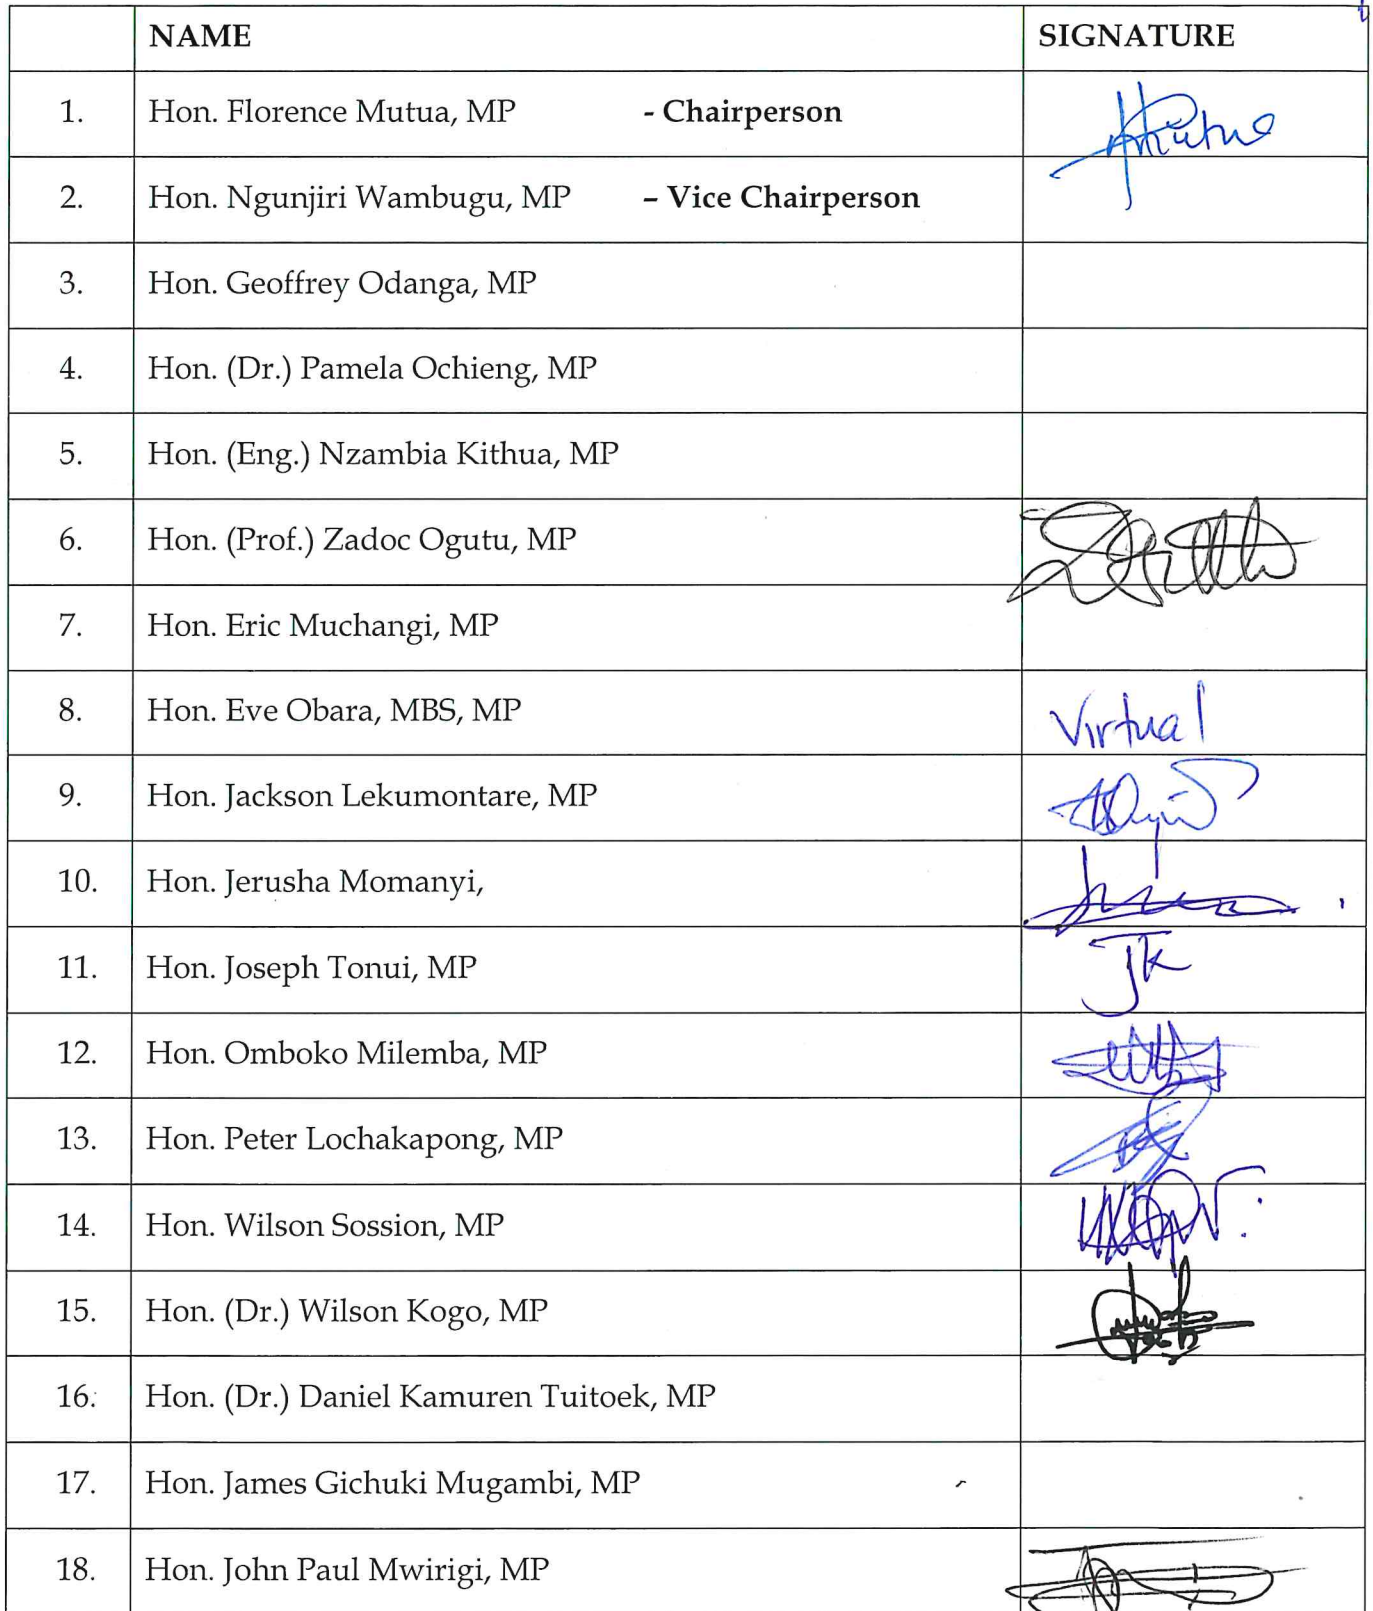 NAME SIGNATURE
1. Hon. Florence Mutua, MP - Chairperson
2. Hon. Ngunjiri Wambugu, MP – Vice Chairperson
3. Hon. Geoffrey Odanga, MP
4. Hon. (Dr.) Pamela Ochieng, MP
5. Hon. (Eng.) Nzambia Kithua, MP
6. Hon. (Prof.) Zadoc Ogutu, MP
7. Hon. Eric Muchangi, MP
8. Hon. Eve Obara, MBS, MP Virtual
9. Hon. Jackson Lekumontare, MP
10. Hon. Jerusha Momanyi,
11. Hon. Joseph Tonui, MP JK
12. Hon. Omboko Milemba, MP
13. Hon. Peter Lochakapong, MP
14. Hon. Wilson Sossion, MP
15. Hon. (Dr.) Wilson Kogo, MP
16. Hon. (Dr.) Daniel Kamuren Tuitoek, MP
17. Hon. James Gichuki Mugambi, MP
18. Hon. John Paul Mwirigi, MP